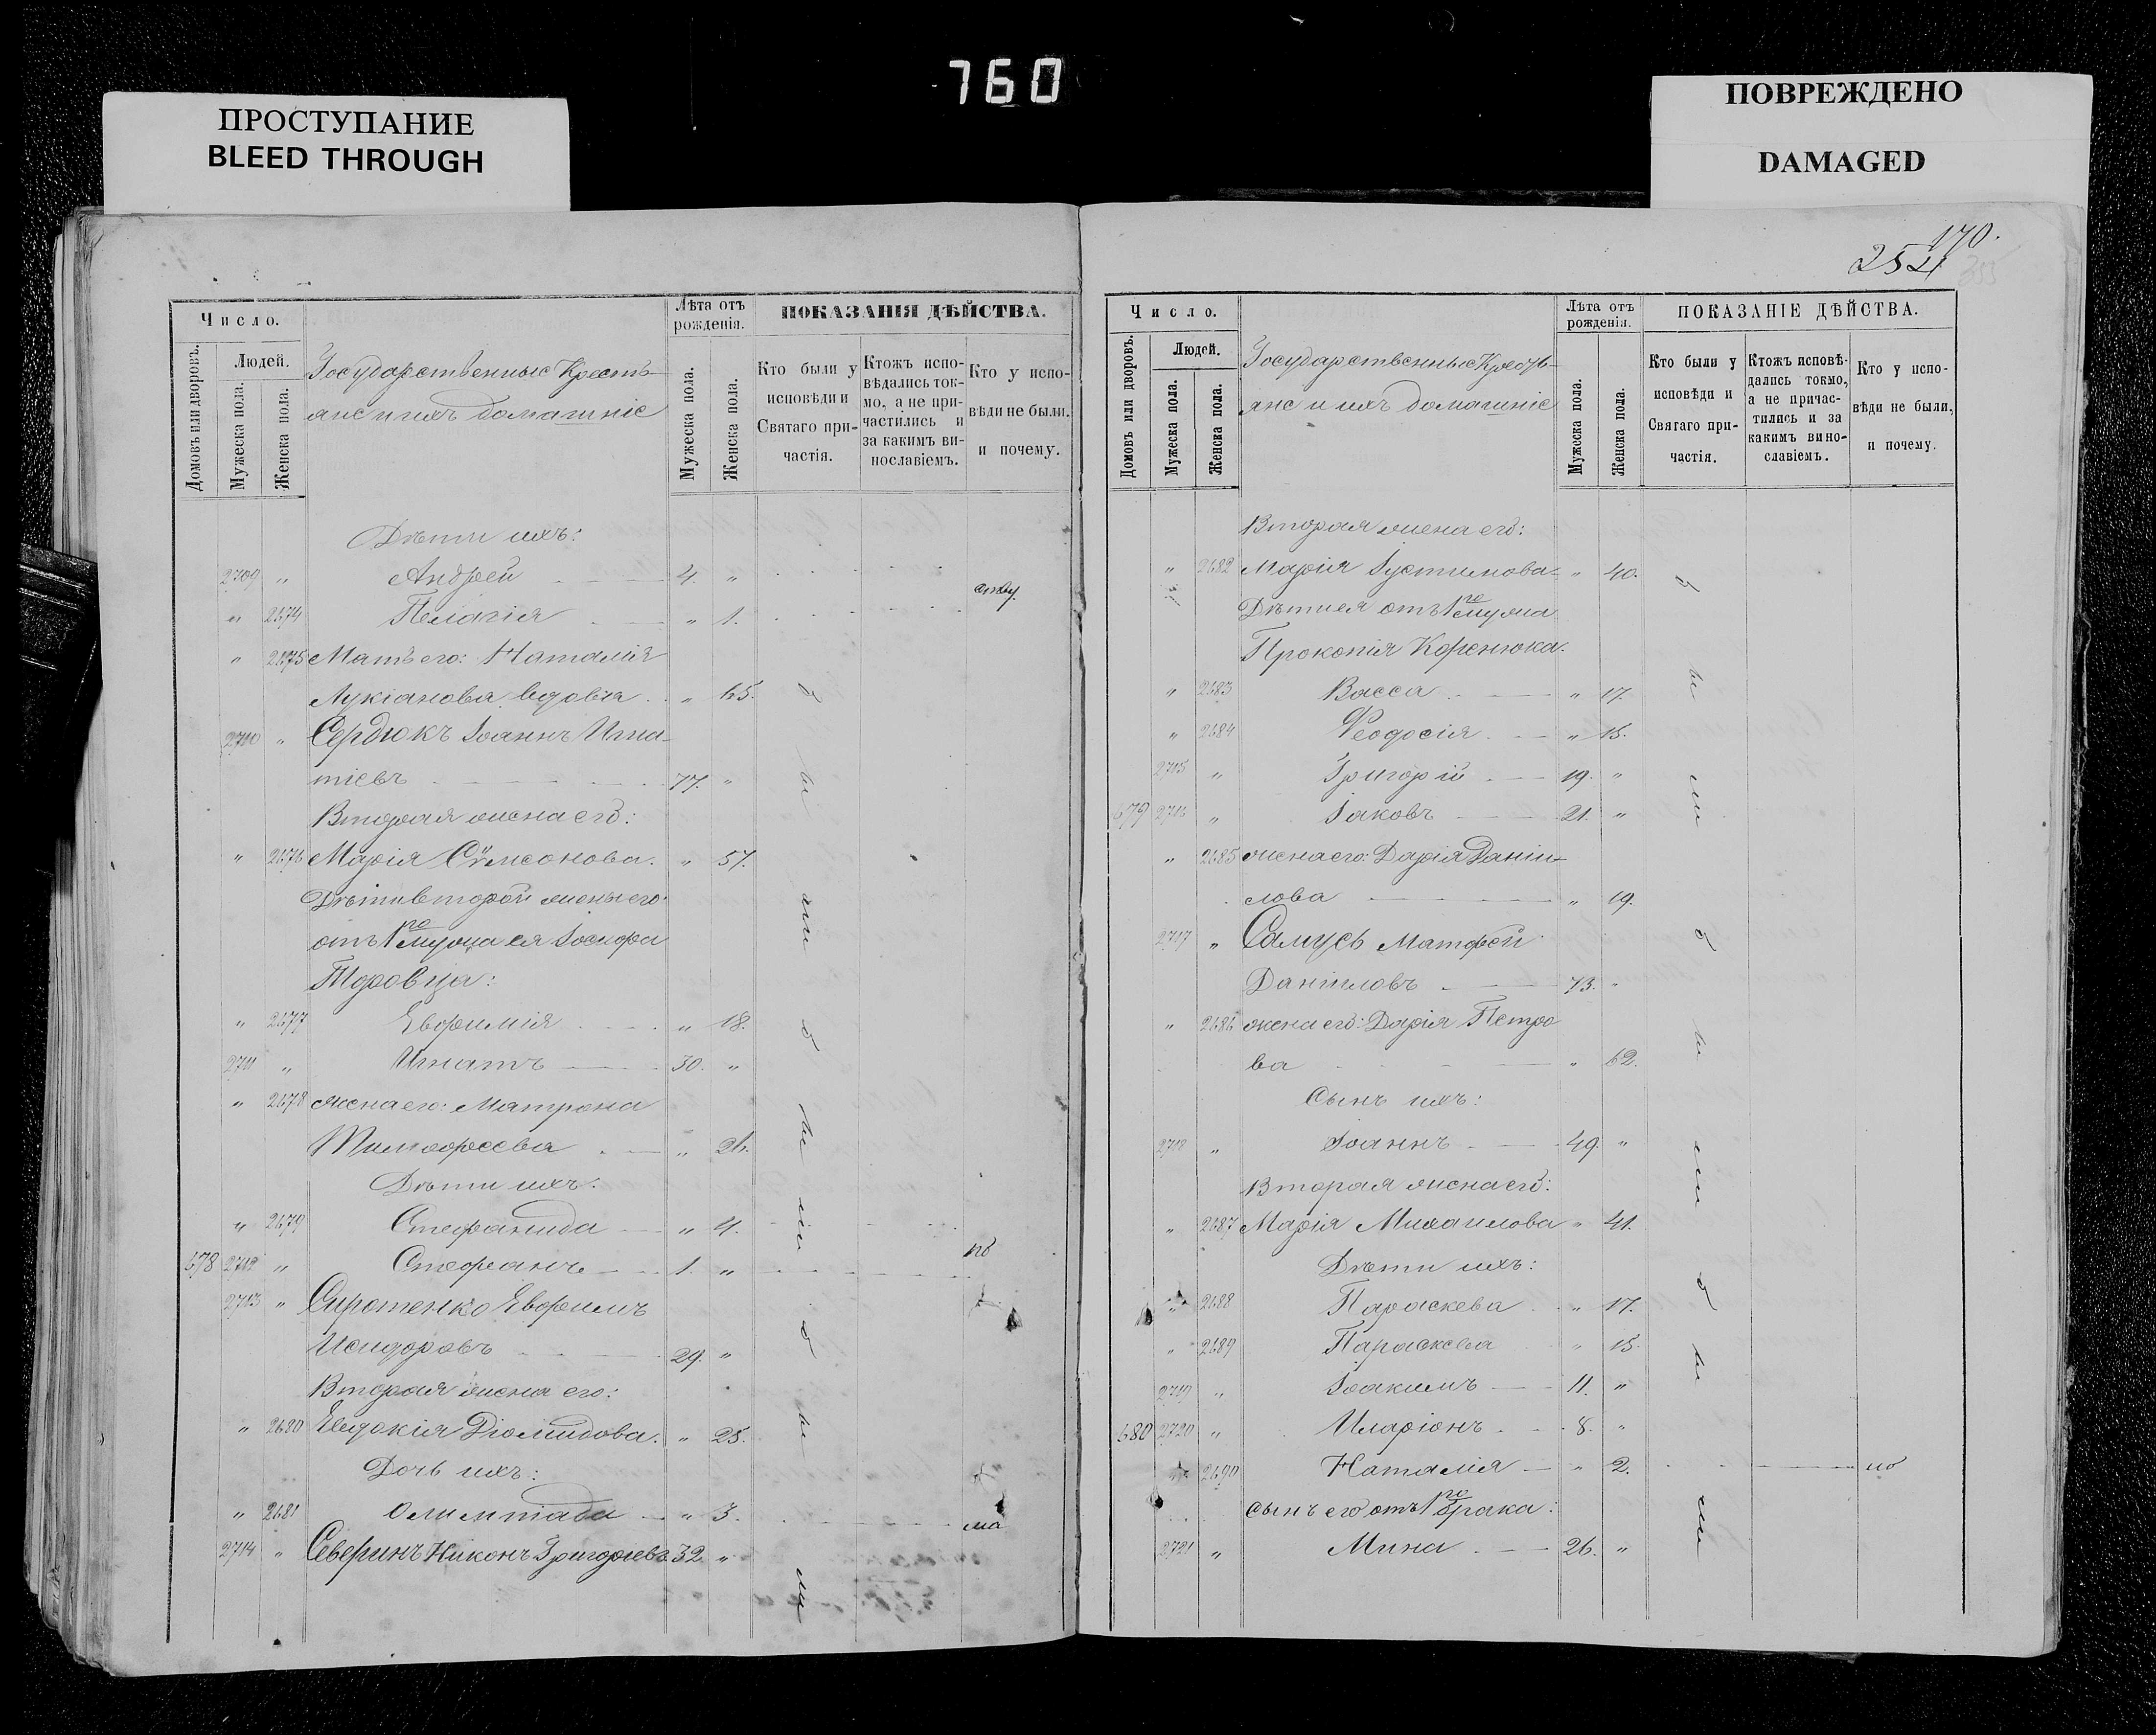 760
ПРОСТУПАНИЕ
BLEED THROUGH
ПОВРЕЖДЕНО
DAMAGED
Число.
Людей.
Домовъ или дворовъ.
Мужеска пола.
Женска пола.
Государственные Кресть-
яне и ихъ домашніе
Лѣта отъ рожденія.
Мужеска пола.
Женска пола.
ПОКАЗАНІЯ ДѢЙСТВА.
Кто были у исповѣди и Святаго при-частія.
Ктожъ испо-вѣдались ток-мо, а не при-частились и за какимъ ви-нославіемъ.
Кто у испо-вѣди не были. и почему.
Дѣти ихъ:
2709 „ Андрей 4. „
„ 2674 Пелагія „ 1.
„ 2675 Мать его: Наталія
Лукіанова вдова „ 65.
2710 „ Сердюкъ Іоаннъ Игна-
тіевъ 77. „
Вторая жена его:
„ 2676 Марія Симеонова. „ 57.
Дѣти второй жены его
отъ 1го мужа ея Іосифа
„ 2677 Евфимія „ 18.
2711 „ Игнатъ 30. „
„ 2678 жена его: Матрона
Тимофеева „ 26.
Дѣти ихъ:
„ 2679 Стефанида „ 4.
678 2712 „ Стефанъ 1. „
2713 „ Сиротенко Евфимъ
Исидоровъ 29. „
Вторая жена его:
„ 2680 Евдокія Діомидова. „ 25.
Дочь ихъ:
„ 2681 Олимпіада „ 3.
2714 „ Северинъ Никонъ Григорьевъ 32 „
170.
254
Число.
Людей.
Домовъ или дворовъ.
Мужеска пола.
Женска пола.
Государственные Кресть-
яне и ихъ домашніе
Лѣта отъ рожденія.
Мужеска пола.
Женска пола.
ПОКАЗАНІЕ ДѢЙСТВА.
Кто были у исповѣди и Святаго при-частія.
Ктожъ исповѣ-дались токмо, а не причас-тились и за какимъ вино-славіемъ.
Кто у испо-вѣди не были, и почему.
Вторая жена его:
„ 2682 Марія Іустинова „ 40.
Дѣти ея отъ 1го мужа
Прокопія Коренюка.
„ 2683 Васса „ 17.
„ 2684 Феодосія „ 15.
2715 „ Григорій 19. „
679 2716 „ Іаковъ 21. „
„ 2685 жена его: Дарія Даніи-
лова „ 19.
2717 „ Самусь Матфей
Даніиловъ 73. „
„ 2686 жена его: Дарія Петро
ва „ 62.
Сынъ ихъ:
2718 „ Іоаннъ 49. „
Вторая жена его:
„ 2687 Марія Михаилова „ 41.
Дѣти ихъ:
„ 2688 Параскева „ 17.
„ 2689 Параскева „ 15.
2719 „ Іоакимъ 11. „
680 2720 „ Иларіонъ 8. „
2690 Наталія „ 2.
сынъ его отъ 1го брака:
2721 „ Мина 26. „